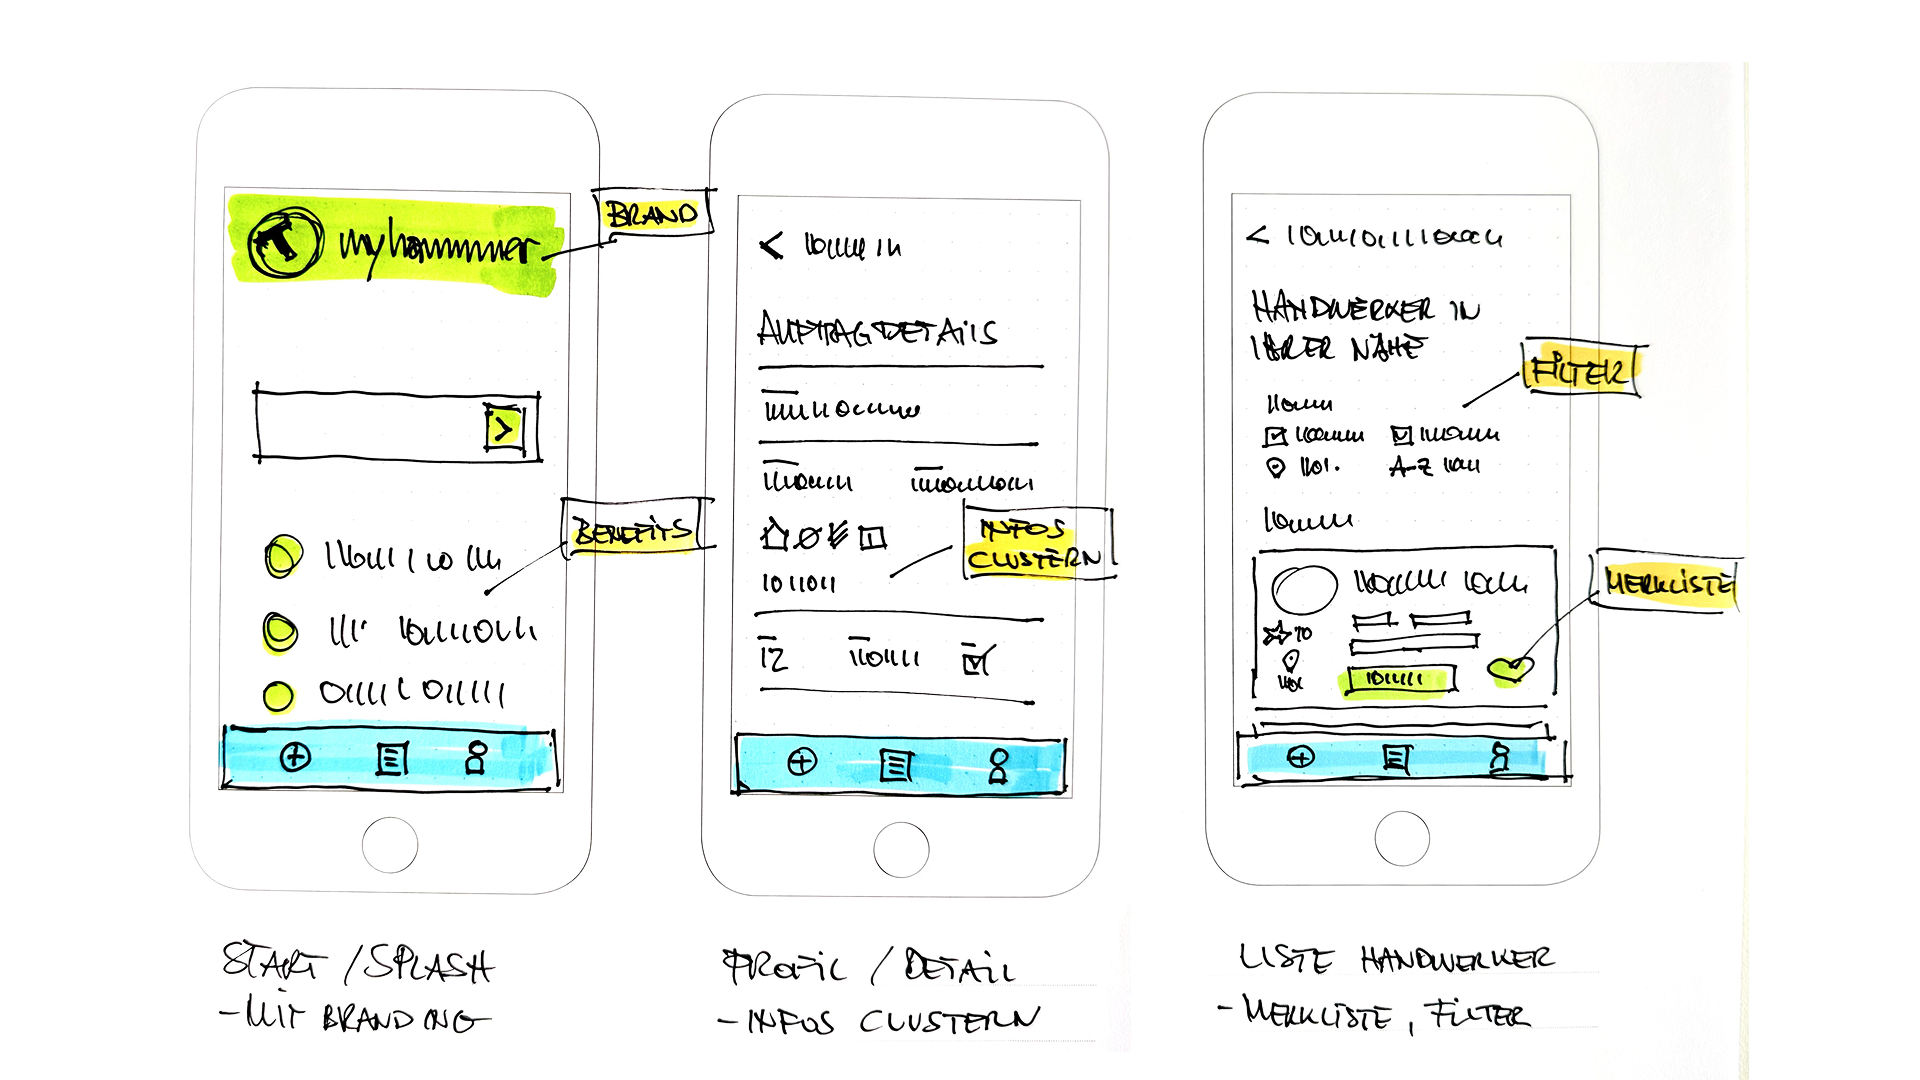 myhammer
BRAND
BENEFITS
START / SPLASH
- MIT BRANDING
AUFTRAGDETAILS
INFOS
CLUSTERN
12
PROFIL / DETAIL
- INFOS CLUSTERN
HANDWERKER IN
IHRER NÄHE
FILTER
A-Z
MERKLISTE
LISTE HANDWERKER
- MERKLISTE, FILTER